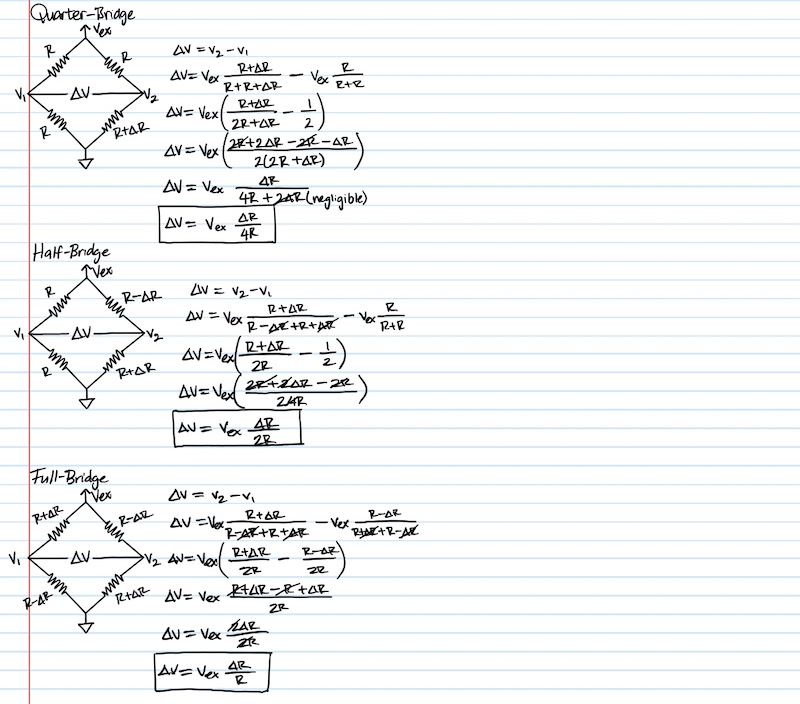 Quarter-Bridge
Vex
R R
V₁ ΔV V₂
R R+ΔR
ΔV = V₂ - V₁
ΔV = Vex (R+ΔR)/(R+R+ΔR) - Vex R/(R+R)
ΔV = Vex ((R+ΔR)/(2R+ΔR) - 1/2)
ΔV = Vex ((2R+2ΔR-2R-ΔR)/(2(2R+ΔR)))
ΔV = Vex ΔR/(4R+2ΔR) (negligible)
ΔV = Vex ΔR/4R
Half-Bridge
Vex
R R-ΔR
V₁ ΔV V₂
R R+ΔR
ΔV = V₂ - V₁
ΔV = Vex (R+ΔR)/(R-ΔR+R+ΔR) - Vex R/(R+R)
ΔV = Vex ((R+ΔR)/2R - 1/2)
ΔV = Vex ((2R+2ΔR-2R)/24R)
ΔV = Vex ΔR/2R
Full-Bridge
Vex
R+ΔR R-ΔR
V₁ ΔV V₂
R-ΔR R+ΔR
ΔV = V₂ - V₁
ΔV = Vex (R+ΔR)/(R-ΔR+R+ΔR) - Vex (R-ΔR)/(R+ΔR+R-ΔR)
ΔV = Vex ((R+ΔR)/2R - (R-ΔR)/2R)
ΔV = Vex (R+ΔR-R+ΔR)/2R
ΔV = Vex 2ΔR/2R
ΔV = Vex ΔR/R